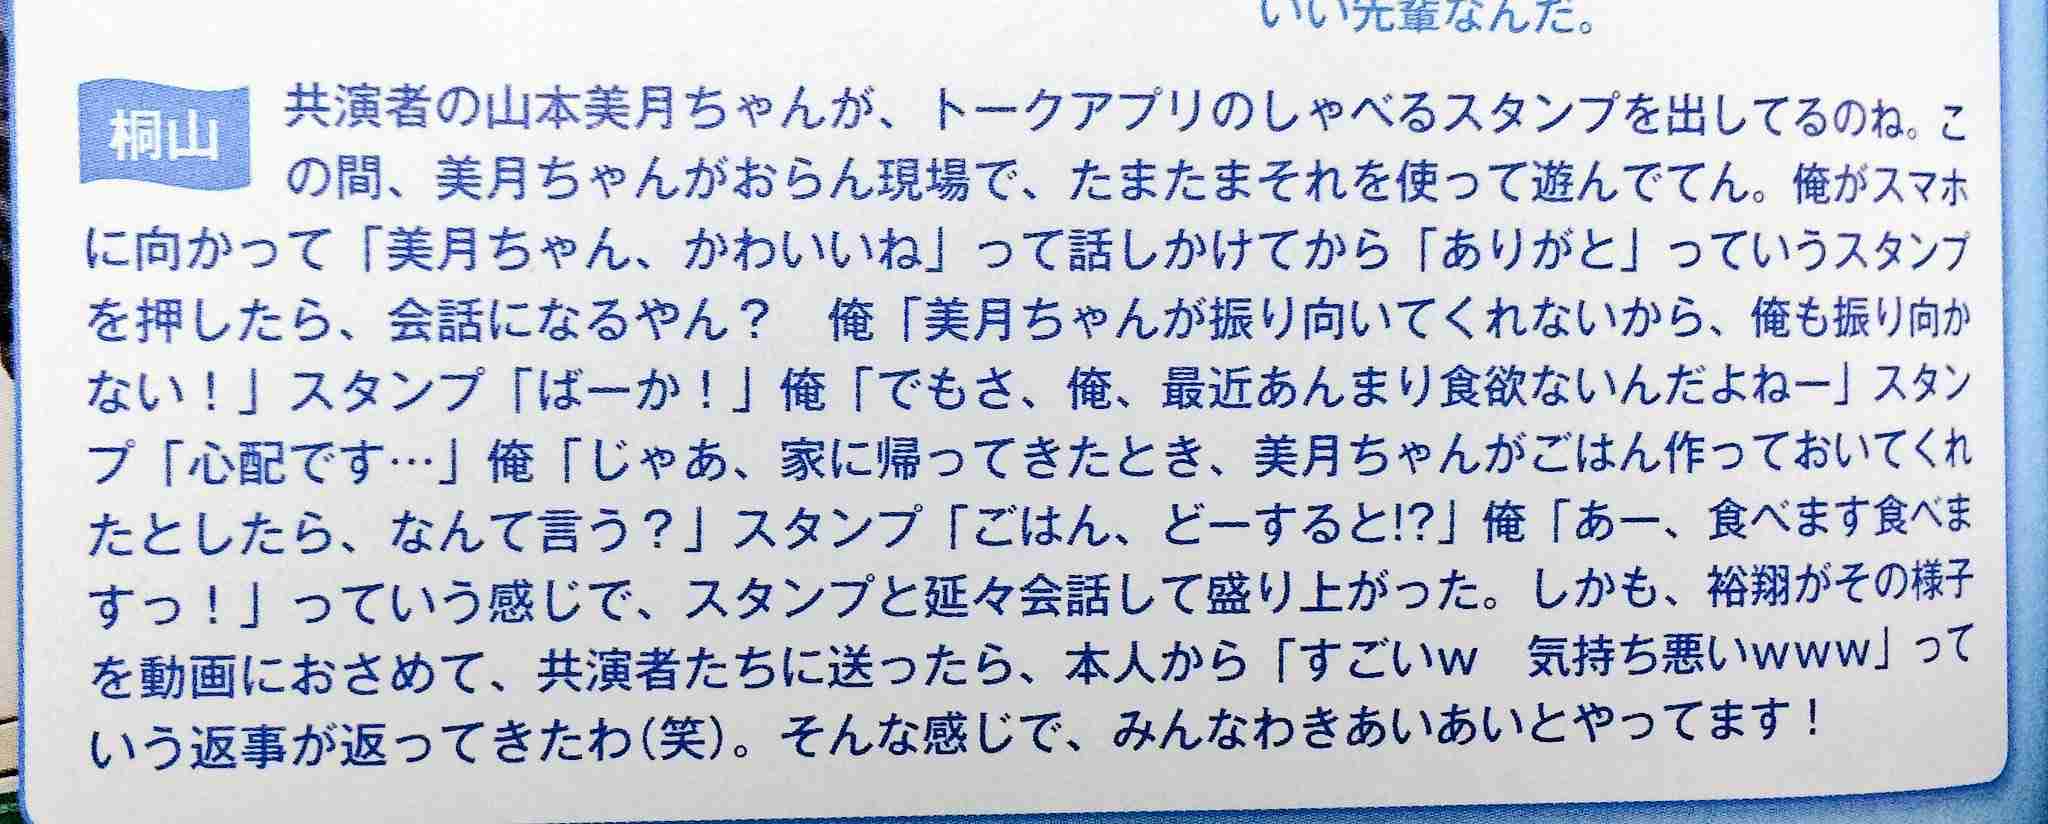 いい先輩なんだ。
桐山
共演者の山本美月ちゃんが、トークアプリのしゃべるスタンプを出してるのね。こ
の間、美月ちゃんがおらん現場で、たまたまそれを使って遊んでてん。俺がスマホ
に向かって「美月ちゃん、かわいいね」って話しかけてから「ありがと」っていうスタンプ
を押したら、会話になるやん？　俺「美月ちゃんが振り向いてくれないから、俺も振り向か
ない！」スタンプ「ばーか！」俺「でもさ、俺、最近あんまり食欲ないんだよねー」スタン
プ「心配です…」俺「じゃあ、家に帰ってきたとき、美月ちゃんがごはん作っておいてくれ
たとしたら、なんて言う？」スタンプ「ごはん、どーすると!?」俺「あー、食べます食べま
すっ！」っていう感じで、スタンプと延々会話して盛り上がった。しかも、裕翔がその様子
を動画におさめて、共演者たちに送ったら、本人から「すごいw　気持ち悪いwww」って
いう返事が返ってきたわ(笑)。そんな感じで、みんなわきあいあいとやってます！